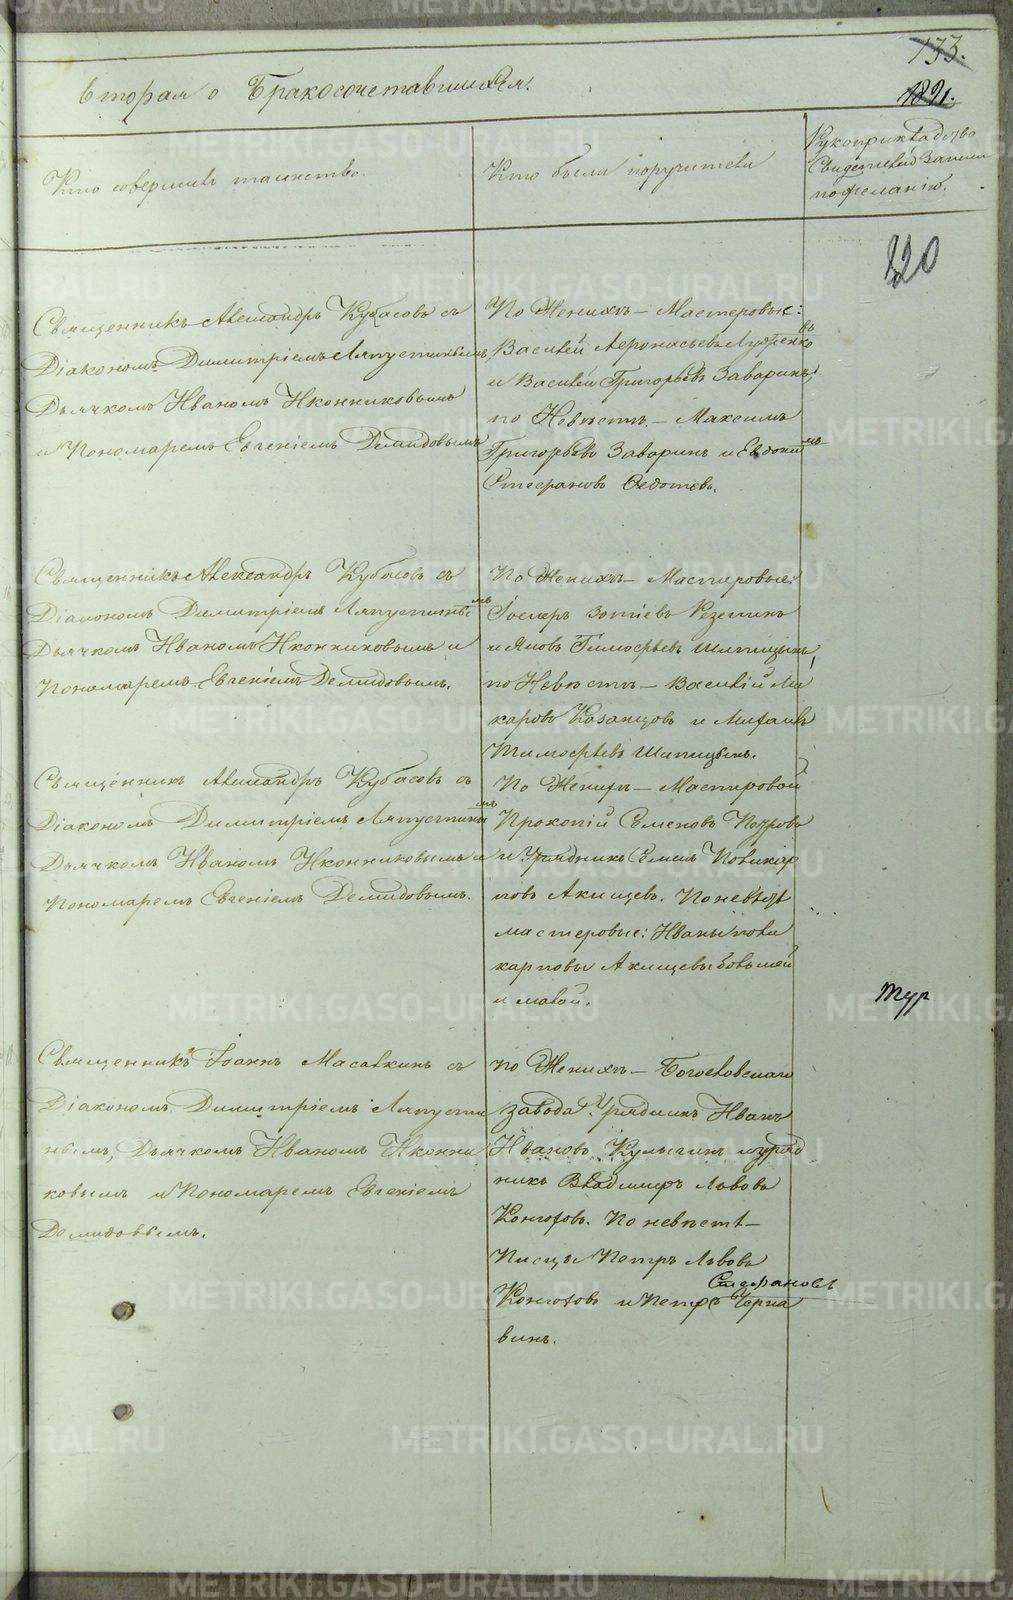 133.
1891.
Вторая о Бракосочетавшихся.
Кто совершилъ таинство.
Кто были поручители
Рукоприкладство
Свидетелей Записи
по желанію.
220
Священникъ Александръ Кубасовъ съ
Діакономъ Димитріемъ Ляпустинымъ
Дьячкомъ Иваномъ Иконниковымъ
и Пономаремъ Евгеніемъ Демидовымъ
По Женихѣ – Мастеровые:
Василей Афонасьевъ
и Василей Григорьевъ Заваринъ;
по Невѣстѣ – Максимъ
Григорьевъ Заваринъ и Евдокимъ
Стефановъ Федотовъ.
Священникъ Александръ Кубасовъ съ
Діакономъ Димитріемъ Ляпустинымъ
Дьячкомъ Иваномъ Иконниковымъ и
Пономаремъ Евгеніемъ Демидовымъ.
По Женихѣ – Мастеровые:
Іосифъ Зотіевъ
и Яковъ Тимофѣевъ Шипицынъ,
по Невѣстѣ – Василій Ма
каровъ Казанцовъ и Михаилъ
Тимофѣевъ Шипицынъ.
Священникъ Александръ Кубасовъ съ
Діакономъ Димитріемъ Ляпустинымъ
Дьячкомъ Иваномъ Иконниковымъ и
Пономаремъ Евгеніемъ Демидовымъ.
По Женихѣ – Мастеровой
Прокопій Семеновъ
и Урядникъ Поликар
повъ Акищевъ. По невѣстѣ
мастеровые: Иваны Поли
карповы Акищевы большей
и малой.
Тур
Священникъ Іоаннъ Масалкинъ съ
Діакономъ Димитріемъ Ляпусти
нымъ, Дьячкомъ Иваномъ Иконни
ковымъ и Пономаремъ Евгеніемъ
Демидовымъ.
По Женихѣ – Богословскаго
завода Урядникъ Иванъ
Ивановъ Кулыгинъ и уряд
никъ Владимиръ Львовъ
Конюховъ. По невѣстѣ –
Писцы Петръ Львовъ
Стефановъ
Конюховъ и Петръ Черна
винъ.
METRIKI.GASO-URAL.RU